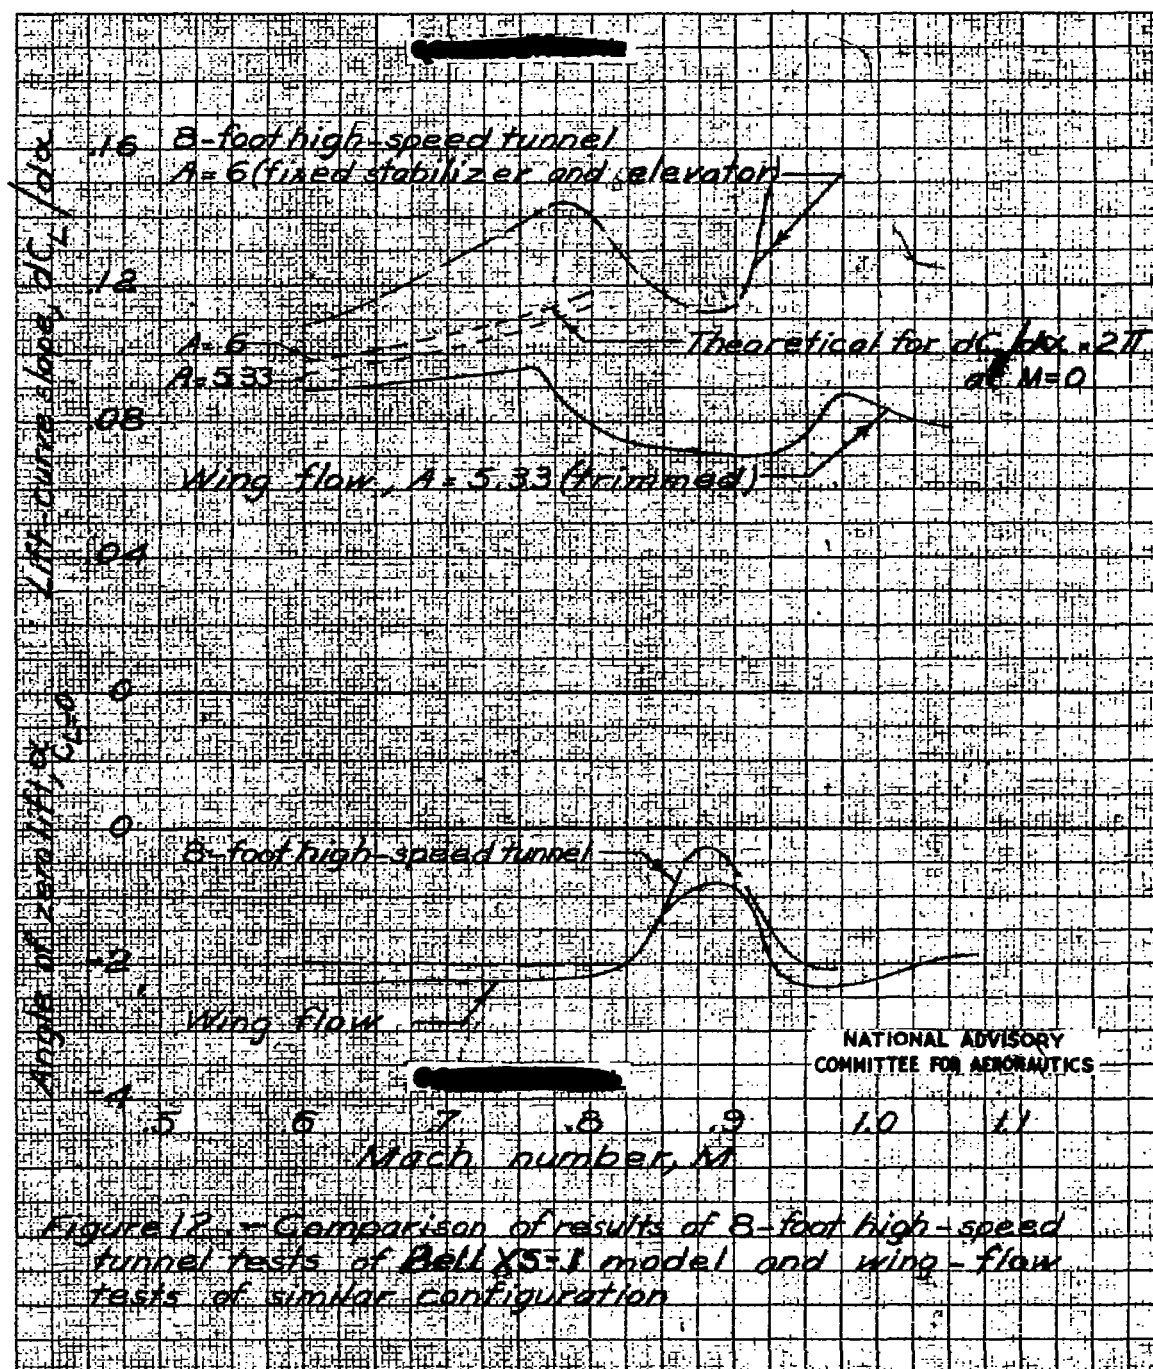 Lift-curve slope, dCL/dα
.16
.12
.08
.04
0
8-foot high-speed tunnel
A=6 (fixed stabilizer and elevator)
A=6
A=5.33
Theoretical for dCL/dα = 2π
at M=0
Wing flow, A=5.33 (trimmed)
Angle of zero lift, α CL=0
0
-2
-4
8-foot high-speed tunnel
Wing flow
NATIONAL ADVISORY
COMMITTEE FOR AERONAUTICS
.5 .6 .7 .8 .9 1.0 1.1
Mach number, M
Figure 12.- Comparison of results of 8-foot high-speed
tunnel tests of Bell XS-1 model and wing-flow
tests of similar configuration